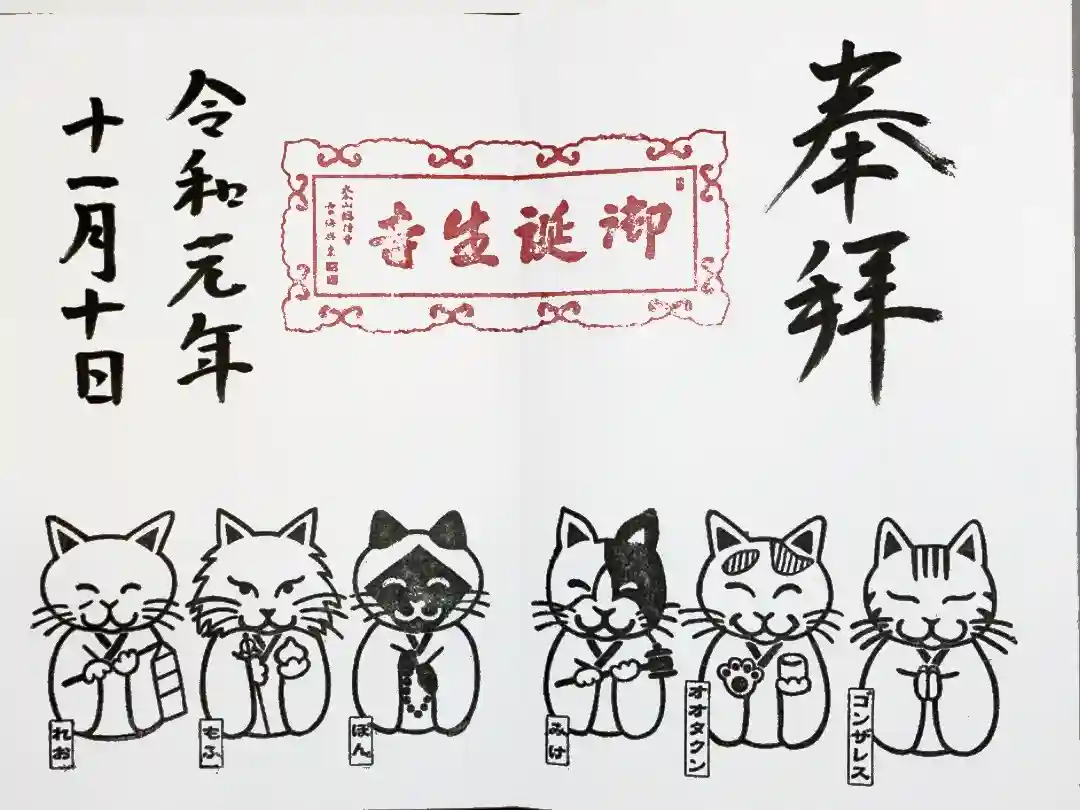 奉拝
御誕生寺
令和元年
十一月十日
ゴンザレス
オオタクン
みけ
ぽん
もふ
れお